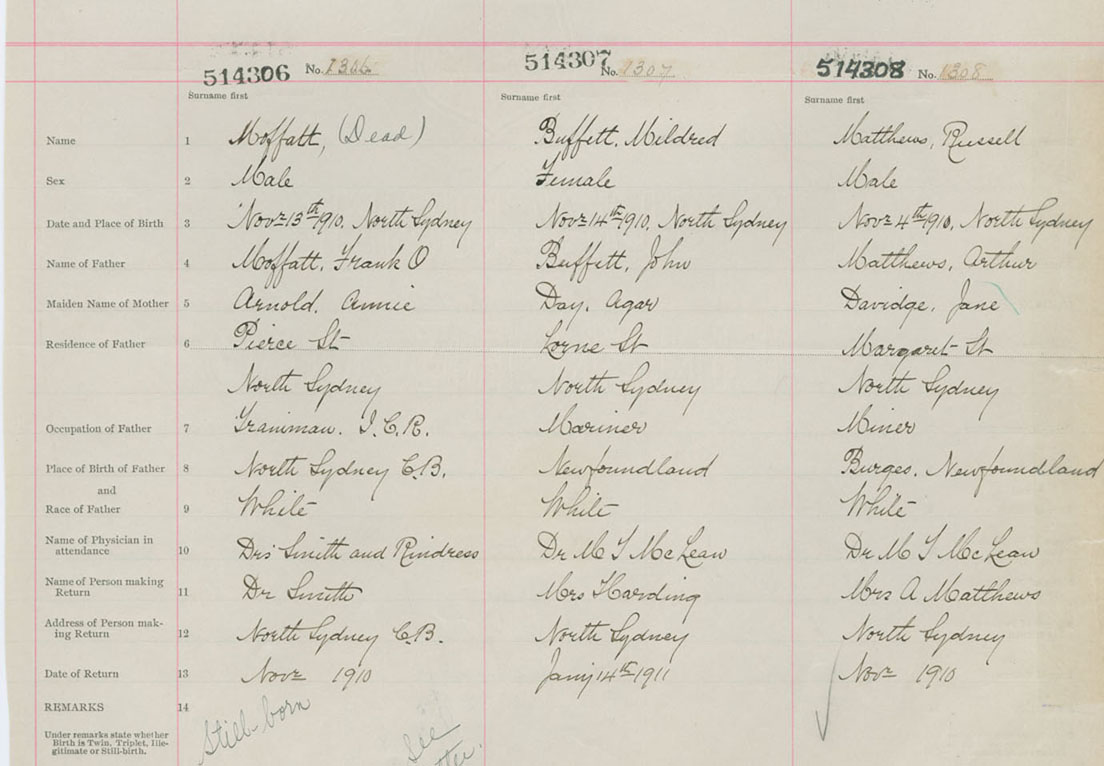 514306 No. 1306 514307 No. 1307 514308 No. 1308
Surname first Surname first Surname first
Name 1 Moffatt, (Dead) Buffett, Mildred Matthews, Russell
Sex 2 Male Female Male
Date and Place of Birth 3 Novr 13th 1910, North Sydney Novr 14th 1910, North Sydney Novr 4th 1910, North Sydney
Name of Father 4 Moffatt, Frank O Buffett, John Matthews, Arthur
Maiden Name of Mother 5 Arnold, Annie Day, Agar Davidge, Jane
Residence of Father 6 Pierce St Lorne St Margaret St
North Sydney North Sydney North Sydney
Occupation of Father 7 Trainman. I.C.R. Mariner Miner
Place of Birth of Father 8 North Sydney C.B. Newfoundland Burges, Newfoundland
and
Race of Father 9 White White White
Name of Physician in
attendance 10 Drs Smith and Rindress Dr M T McLean Dr M T McLean
Name of Person making
Return 11 Dr Smith Mrs Harding Mrs A Matthews
Address of Person mak-
ing Return 12 North Sydney C.B. North Sydney North Sydney
Date of Return 13 Novr 1910 Jany 14th 1911 Novr 1910
REMARKS 14
Still-born See
Under remarks state whether
Birth is Twin, Triplet, Ille-
gitimate or Still-birth.